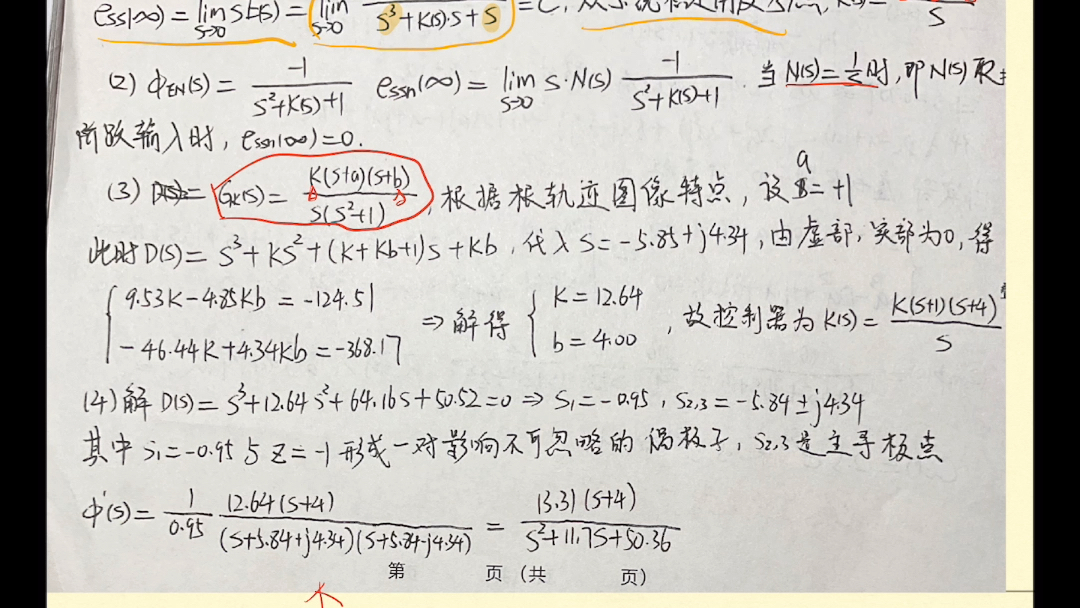 ess(∞) = lim s→0 sE(s) = lim s→0 / s³+K(s)·s+s = C,
(2) Φ_EN(s) = -1/(s²+K(s)+1) e_ssn(∞) = lim s→0 s·N(s) -1/(s²+K(s)+1). 当N(s)=1/s时, 即N(s)取
阶跃输入时, e_ssn(∞)=0.
(3) G_K(s) = K(s+a)(s+b)/(s(s²+1)), 根据根轨迹图像特点, 设a=+1
此时D(s) = s³+Ks²+(K+Kb+1)s+Kb, 代入s=-5.85+j4.34, 由虚部, 实部为0, 得
{ 9.53K-4.85Kb=-124.51
-46.44K+4.34Kb=-368.17 ⇒ 解得 { K=12.64
b=4.00 , 故控制器为K(s)= K(s+1)(s+4)/s
(4)解D(s)=s³+12.64s²+64.16s+50.52=0 ⇒ s₁=-0.95, s₂,₃=-5.84±j4.34
其中s₁=-0.95与z=-1形成一对影响不可忽略的偶极子, s₂,₃是主导极点
Φ'(s) = 1/0.95 12.64(s+4)/((s+5.84+j4.34)(s+5.84-j4.34)) = 13.31(s+4)/(s²+11.7s+50.36)
第 页（共 页）